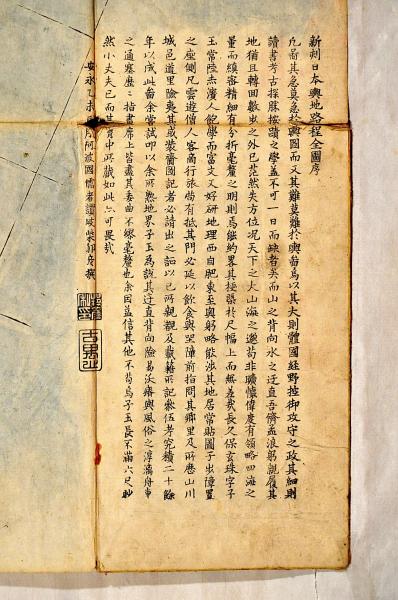 新刻日本輿地路程全圖序
凡圖其急莫急於輿圖而又其難莫難於輿圖焉以其大則體國経野控御攻守之政其細則
讀書考古探勝按蹟之學盖不可一日而缺者矣而山之背向水之迂直吾儕孟浪躬親履其
地猶且轉回數出之外已茫然失方位況天下之大山海之邈苟非曠懐偉度有領略四海之
量而縝密精細有分折毫釐之明則焉継約畧其梗槩於尺幅上而無差哉長久保玄珠字子
玉常陸赤濱人飽學而富文又好研地理西自肥東至奥躬略能渉其地居常貼圖子出障置
之座側凡雲遊僧人客商行旅尚有抵其門必延以飲食與坐障前指問其郷里及所歴山川
城邑道里險夷其或装齎圖記者必請出之証以已所親觀及載籍所記參伍考究積二十餘
年以成此圖余嘗試叩以余所熟地界子玉為説其迂直背向險易沃瘠與風俗之淳漓舟車
之通塞歴々指畫席上皆盡其委曲不繆毫釐也余因益信其他不苟焉子玉長不滿六尺眇
然小丈夫已而其胸中所蔵如此亦可畏哉
安永乙未 月阿波國儒者讃岐柴邦彦撰